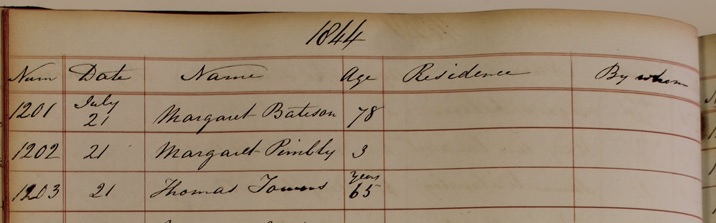 1844
Num Date Name Age Residence By whom
1201 July 21 Margaret Bateson 78
1202 21 Margaret Pimbly 3
1203 21 Thomas Towns years 65